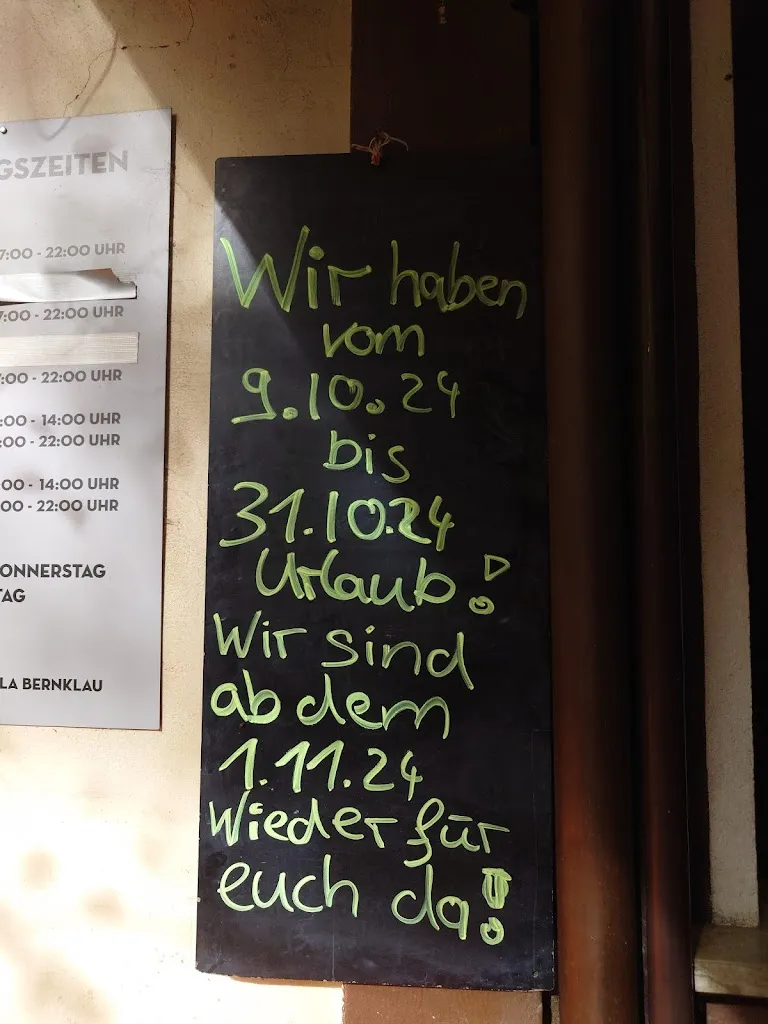 GSZEITEN
7:00 - 22:00 UHR
7:00 - 22:00 UHR
:00 - 22:00 UHR
:00 - 14:00 UHR
:00 - 22:00 UHR
00 - 14:00 UHR
00 - 22:00 UHR
ONNERSTAG
TAG
LA BERNKLAU
Wir haben
vom
9.10.24
bis
31.10.24
Urlaub!
Wir sind
ab dem
1.11.24
Wieder für
euch da!